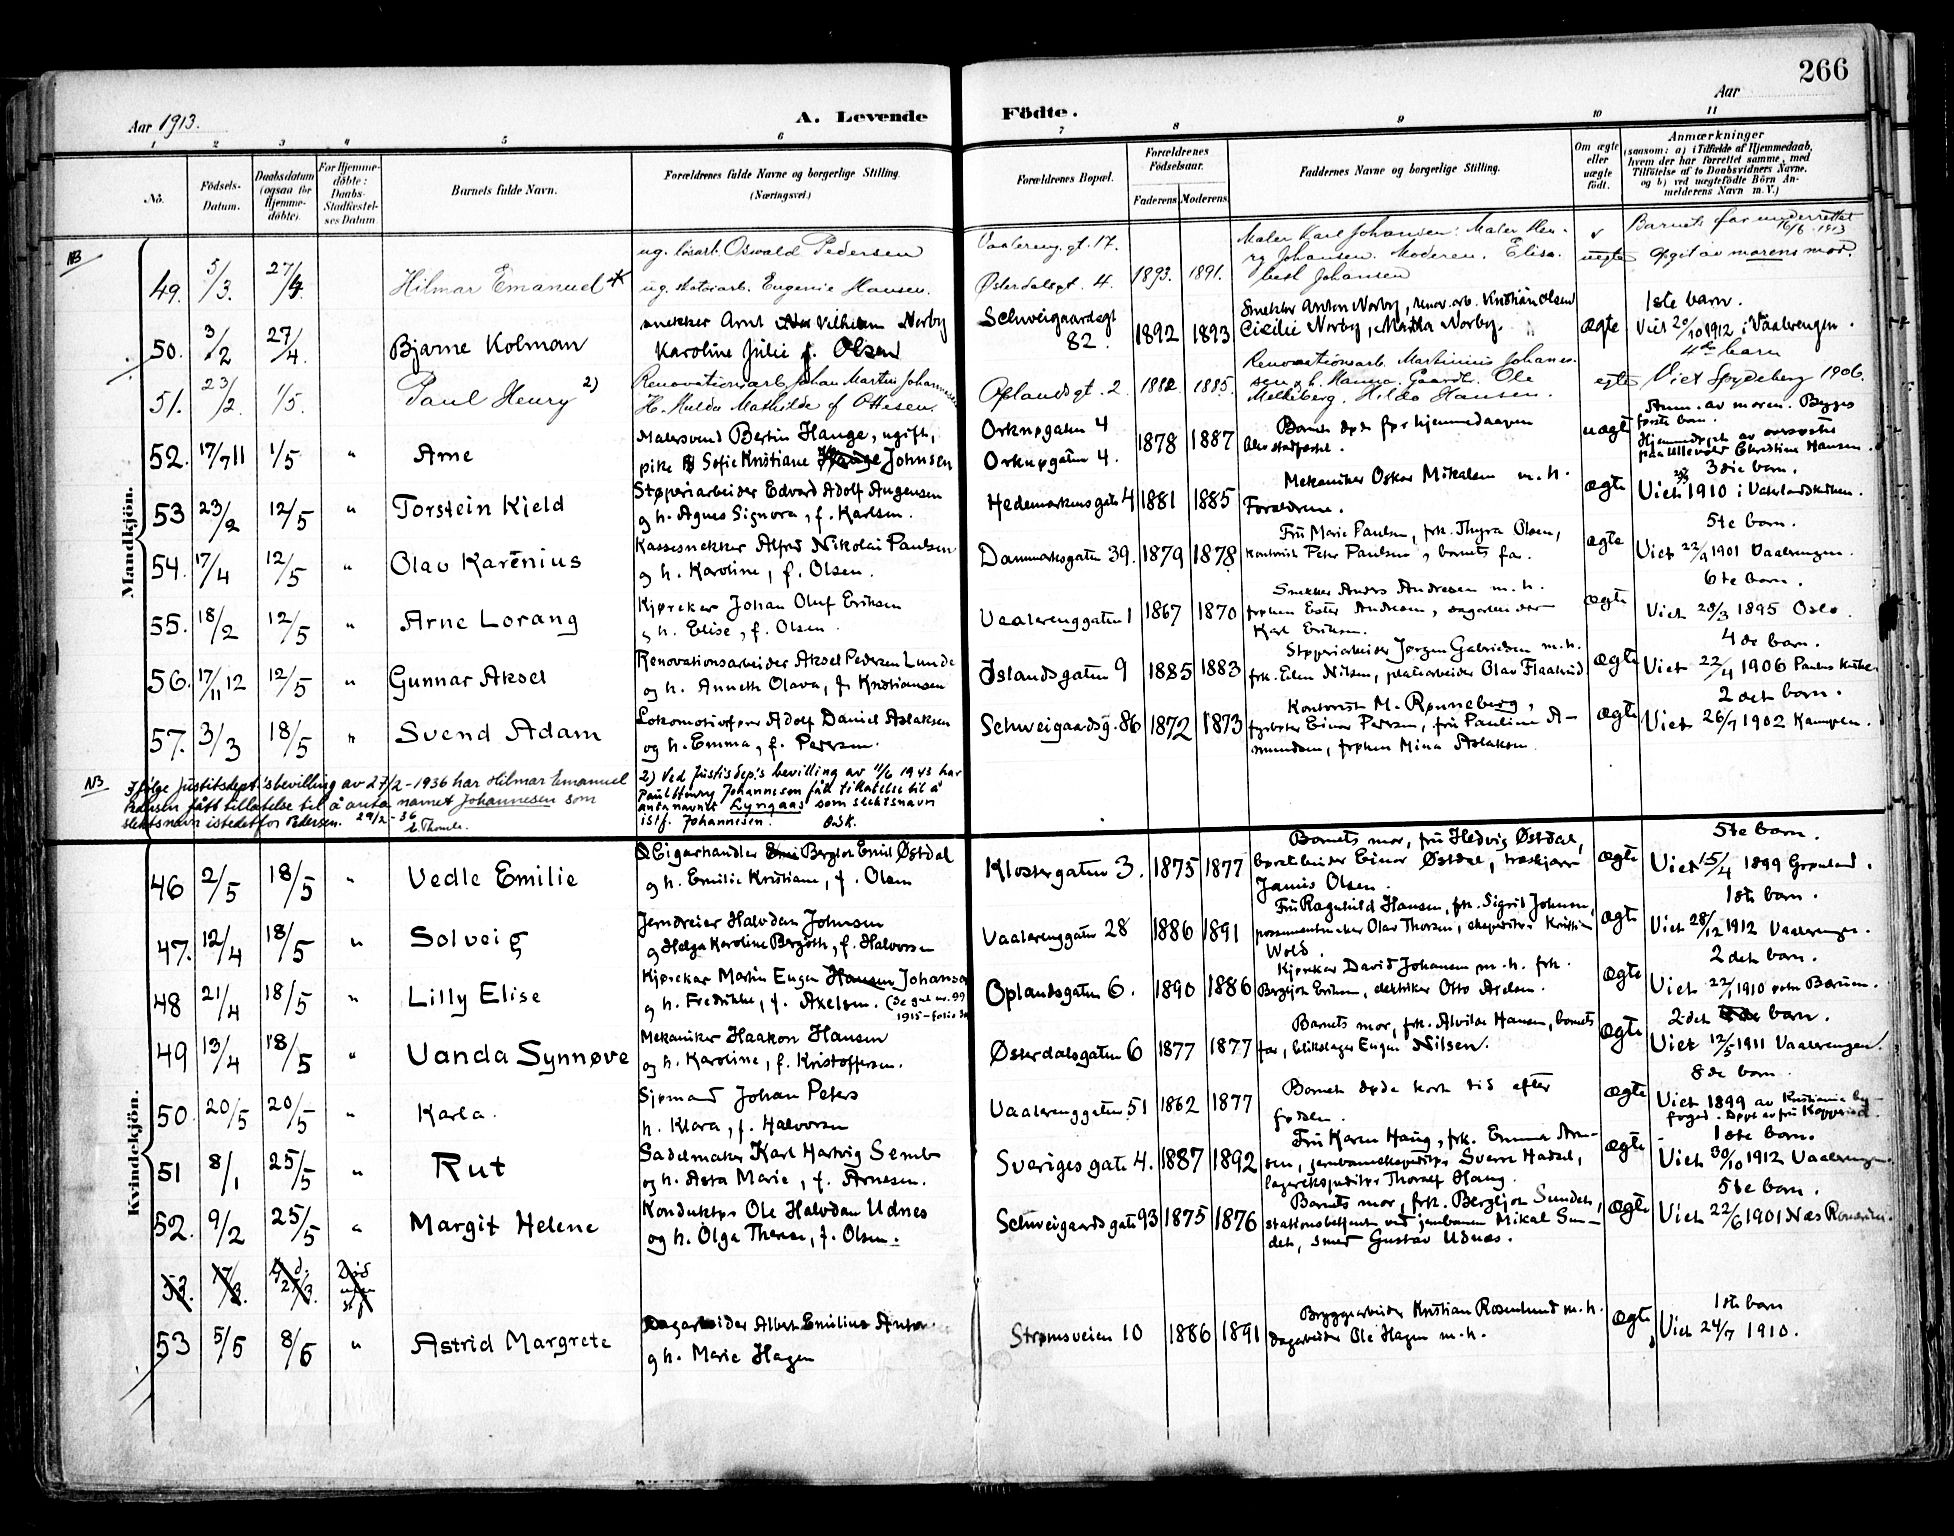 266
Aar 1913.
A. Levende Födte.
Aar
1 2 3 4 5 6 7 8 9 10 11
No.
Födsels-Datum.
Daabsdatum (ogsaa for Hjemme-döbte).
For Hjemme-döbte: Daabs-Stadfæstel-ses Datum
Barnets fulde Navn.
Forældrenes fulde Navne og borgerlige Stilling. (Næringsvei.)
Forældrenes Bopæl.
Forældrenes Födselsaar.
Faderens Moderens
Faddernes Navne og borgerlige Stilling.
Om ægte eller uægte født.
Anmærkninger
(saasom: a) i Tilfælde af Hjemmedaab, hvem der har forrettet samme, med Tilföielse af to Daabsvidners Navne, og b) ved uægtefödte Börn An-melderens Navn m. V.)
Mandkjön.
NB
49. 5/3. 27/4 Hilmar Emanuel
ug. Oswald Pedersen
ug. Eugenie Hansen.
Vaalereng.gt. 17.
Østerdalsgt. 4. 1893. 1891.
Maler Karl Johansen. Maler Hen-
ry Johansen. Moderen. Elisa-
beth Johansen
uegte
Barnets far underrettet 16/6 1913
Opgit av morens mor.
50. 3/2 27/4. Bjarne Kolman
snekker Arnt Vilhelm Norby
Karoline Julie f. Olsen
Schweigaardsgt 82. 1892 1893
Snekker Anton Norby, renov.arb. Kristian Olsen
Cicilie Norby, Norby.
ægte
1ste barn.
Viet 20/10 1912 i Vaalerengen.
51. 23/2. 1/5. Paul Henry 2)
Renovationsarb. Johan Martin Johannesen
H. Hulda Mathilde f. Ottesen.
Oplandsgt. 2. 1882. 1885.
Renovationsarb. Martinius Johanne-
sen
Melkeberg. Hilda Hansen.
egte
4de barn
Viet Spydeberg 1906.
52. 17/7 11 1/5 " Arne
Malersvend Bertin Hauge, ugift,
pike Sofie Kristiane Johnsen
Orknøgaten 4
Orknøgaten 4. 1878 1887
Barnet døpt før hjemmedaaven
uægte
Anm. av moren. Begges
første barn.
Hjemmedøpt av
paa Ullevold Christine Hansen.
53 23/2 12/5 " Torstein Kield
Støperiarbeider Edvard Adolf Augensen
og h. Agnes Signora, f. Karlsen.
Hedemarkensgate 4 1881 1885
Mekaniker Oskar Mikalsen m. h.
Forældrene.
ægte
3die barn.
Viet 1910 i Vaterlandskirken.
54. 17/4 12/5 " Olav Karenius
Kassesnekker Alfred Nikolai Paulsen
og h. Karoline, f. Olsen.
Danmarksgaten 39. 1879 1878
Fru Marie Paulsen, frk. Thyra Olsen,
kontorist Peter Paulsen, barnets far.
ægte
5te barn.
Viet 22/9 1901 Vaalerengen.
55. 18/2 12/5 " Arne Lorang
Kjørekar Johan Oluf Eriksen
og h. Elise, f. Olsen.
Vaalerenggaten 1 1867 1870
Snekker Anders Andresen m. h.
frøken Ester Andresen,
Karl Eriksen.
ægte
6te barn.
Viet 28/3 1895 Oslo.
56. 17/11 12 12/5 " Gunnar Aksel
Renovationsarbeider Aksel Pedersen Lunde
og h. Anneth Olava, f. Kristiansen
Islandsgaten 9 1885 1883
Støperiarbeider Jørgen Gabrielsen m. h.
frk. Ellen Nilsen, platearbeider Olav Flaatrud
ægte
4de barn.
Viet 22/4 1906 Paulus kirke
57. 3/3 18/5 " Svend Adam
Lokomotivfører Adolf Daniel Aslaksen
og h. Emma, f. Pedersen.
Schweigaardsg. 86 1872 1873
Kontorist M. Rønneberg,
fyrbøter Einar Pedersen, fru Pauline A-
mundsen, frøken Mina Aslaksen
ægte
2det barn.
Viet 26/7 1902 Kampen.
NB. Ifølge Justitsdept's bevilling av 27/2-1936 har Hilmar Emanuel
Hansen fått tillatelse til å anta navnet Johannesen som
slektsnavn istedetfor Pedersen. 29/2-36
2) Ved Justisdep's bevilling av 11/6 1943 har
Paul Henry Johannesen fåt tillatelse til å
anta navnet Lyngaas som slektsnavn
istf. Johannesen.
Kvindekjön.
46 2/5 18/5 " Vedle Emilie
Cigarhandler Bergtor Emil Østdal
og h. Emilie Kristiane, f. Olsen
Klostergaten 3. 1875 1877
Barnets mor, fru Hedvig Østdal,
Einar Østdal,
Janus Olsen.
ægte
5te barn.
Viet 15/4 1899 Grønland.
47. 12/4 18/5 " Solveig
Jerndreier Halvdan Johnsen
og Helga Karoline Bergoth, f. Halvorsen
Vaalerenggaten 28 1886 1891
Fru Ragnhild Hansen, frk. Sigrid Johnsen,
Olav Thorsen, ekspeditør Kristian
Wold.
ægte
1ste barn.
Viet 28/12 1912 Vaalerengen.
48 21/4 18/5 " Lilly Elise
Kjørekar Martin Eugen Hansen Johansen
og h. Fredrikke, f. Akselsen. (Se gut nr. 99
1915 - folio
Oplandsgaten 6. 1890 1886
Kjørekar David Johansen m. h. frk.
Bergljot Eriksen, elektriker Otto Axelsen.
ægte
2det barn.
Viet 22/1 1910 Bærum.
49 13/4 18/5 " Vanda Synnøve
Mekaniker Haakon Hansen
og h. Karoline, f. Kristoffersen.
Østerdalsgaten 6 1877 1877
Barnets mor, frk. Alvilde Hansen, barnets
far, blikslager Eugen Nilsen.
ægte
2det barn.
Viet 12/5 1911 Vaalerengen.
50. 20/5 20/5 " Karla.
Sjømand Johan Peters
h. Klara, f. Halvorsen
Vaalerenggaten 51 1862 1877
Barnet døde kort tid efter
fødslen.
ægte
8de barn.
Viet 1899 av Kristiania by-
foged. Døpt av fru
51 8/1 25/5 " Rut
Sadelmaker Karl Hartvig Semb
og h. Asta Marie, f. Arnesen.
Sverigesgate 4. 1887 1892
Fru Karen Haug, frk. Emma Arne-
sen, jernbaneekspeditør Sverre Hadsel,
lagerekspeditør Thoralf Haug.
ægte
1ste barn.
Viet 30/10 1912 Vaalerengen.
52. 9/2 25/5 " Margit Helene
Konduktør Ole Halvdan Udnes
og h. Olga Therese, f. Olsen.
Schweigaardsgate 93 1875 1876
Barnets mor, frk. Bergljot Sundet,
stationsbetjent ved jernbanen Mikal Sun-
det, smed Gustav Udnæs.
ægte
5te barn.
Viet 22/6 1901 Næs Romerike.
53. 17/3. 25/3. Død
53 5/5 8/6 " Astrid Margrete
Dagarbeider Albert Emilius
og h. Marie Hagen
Strømsveien 10 1886 1891
Bryggearbeider Kristian Rosenlund m. h.
Dagarbeider Ole Hagen m. h.
ægte
1ste barn
Viet 24/7 1910.